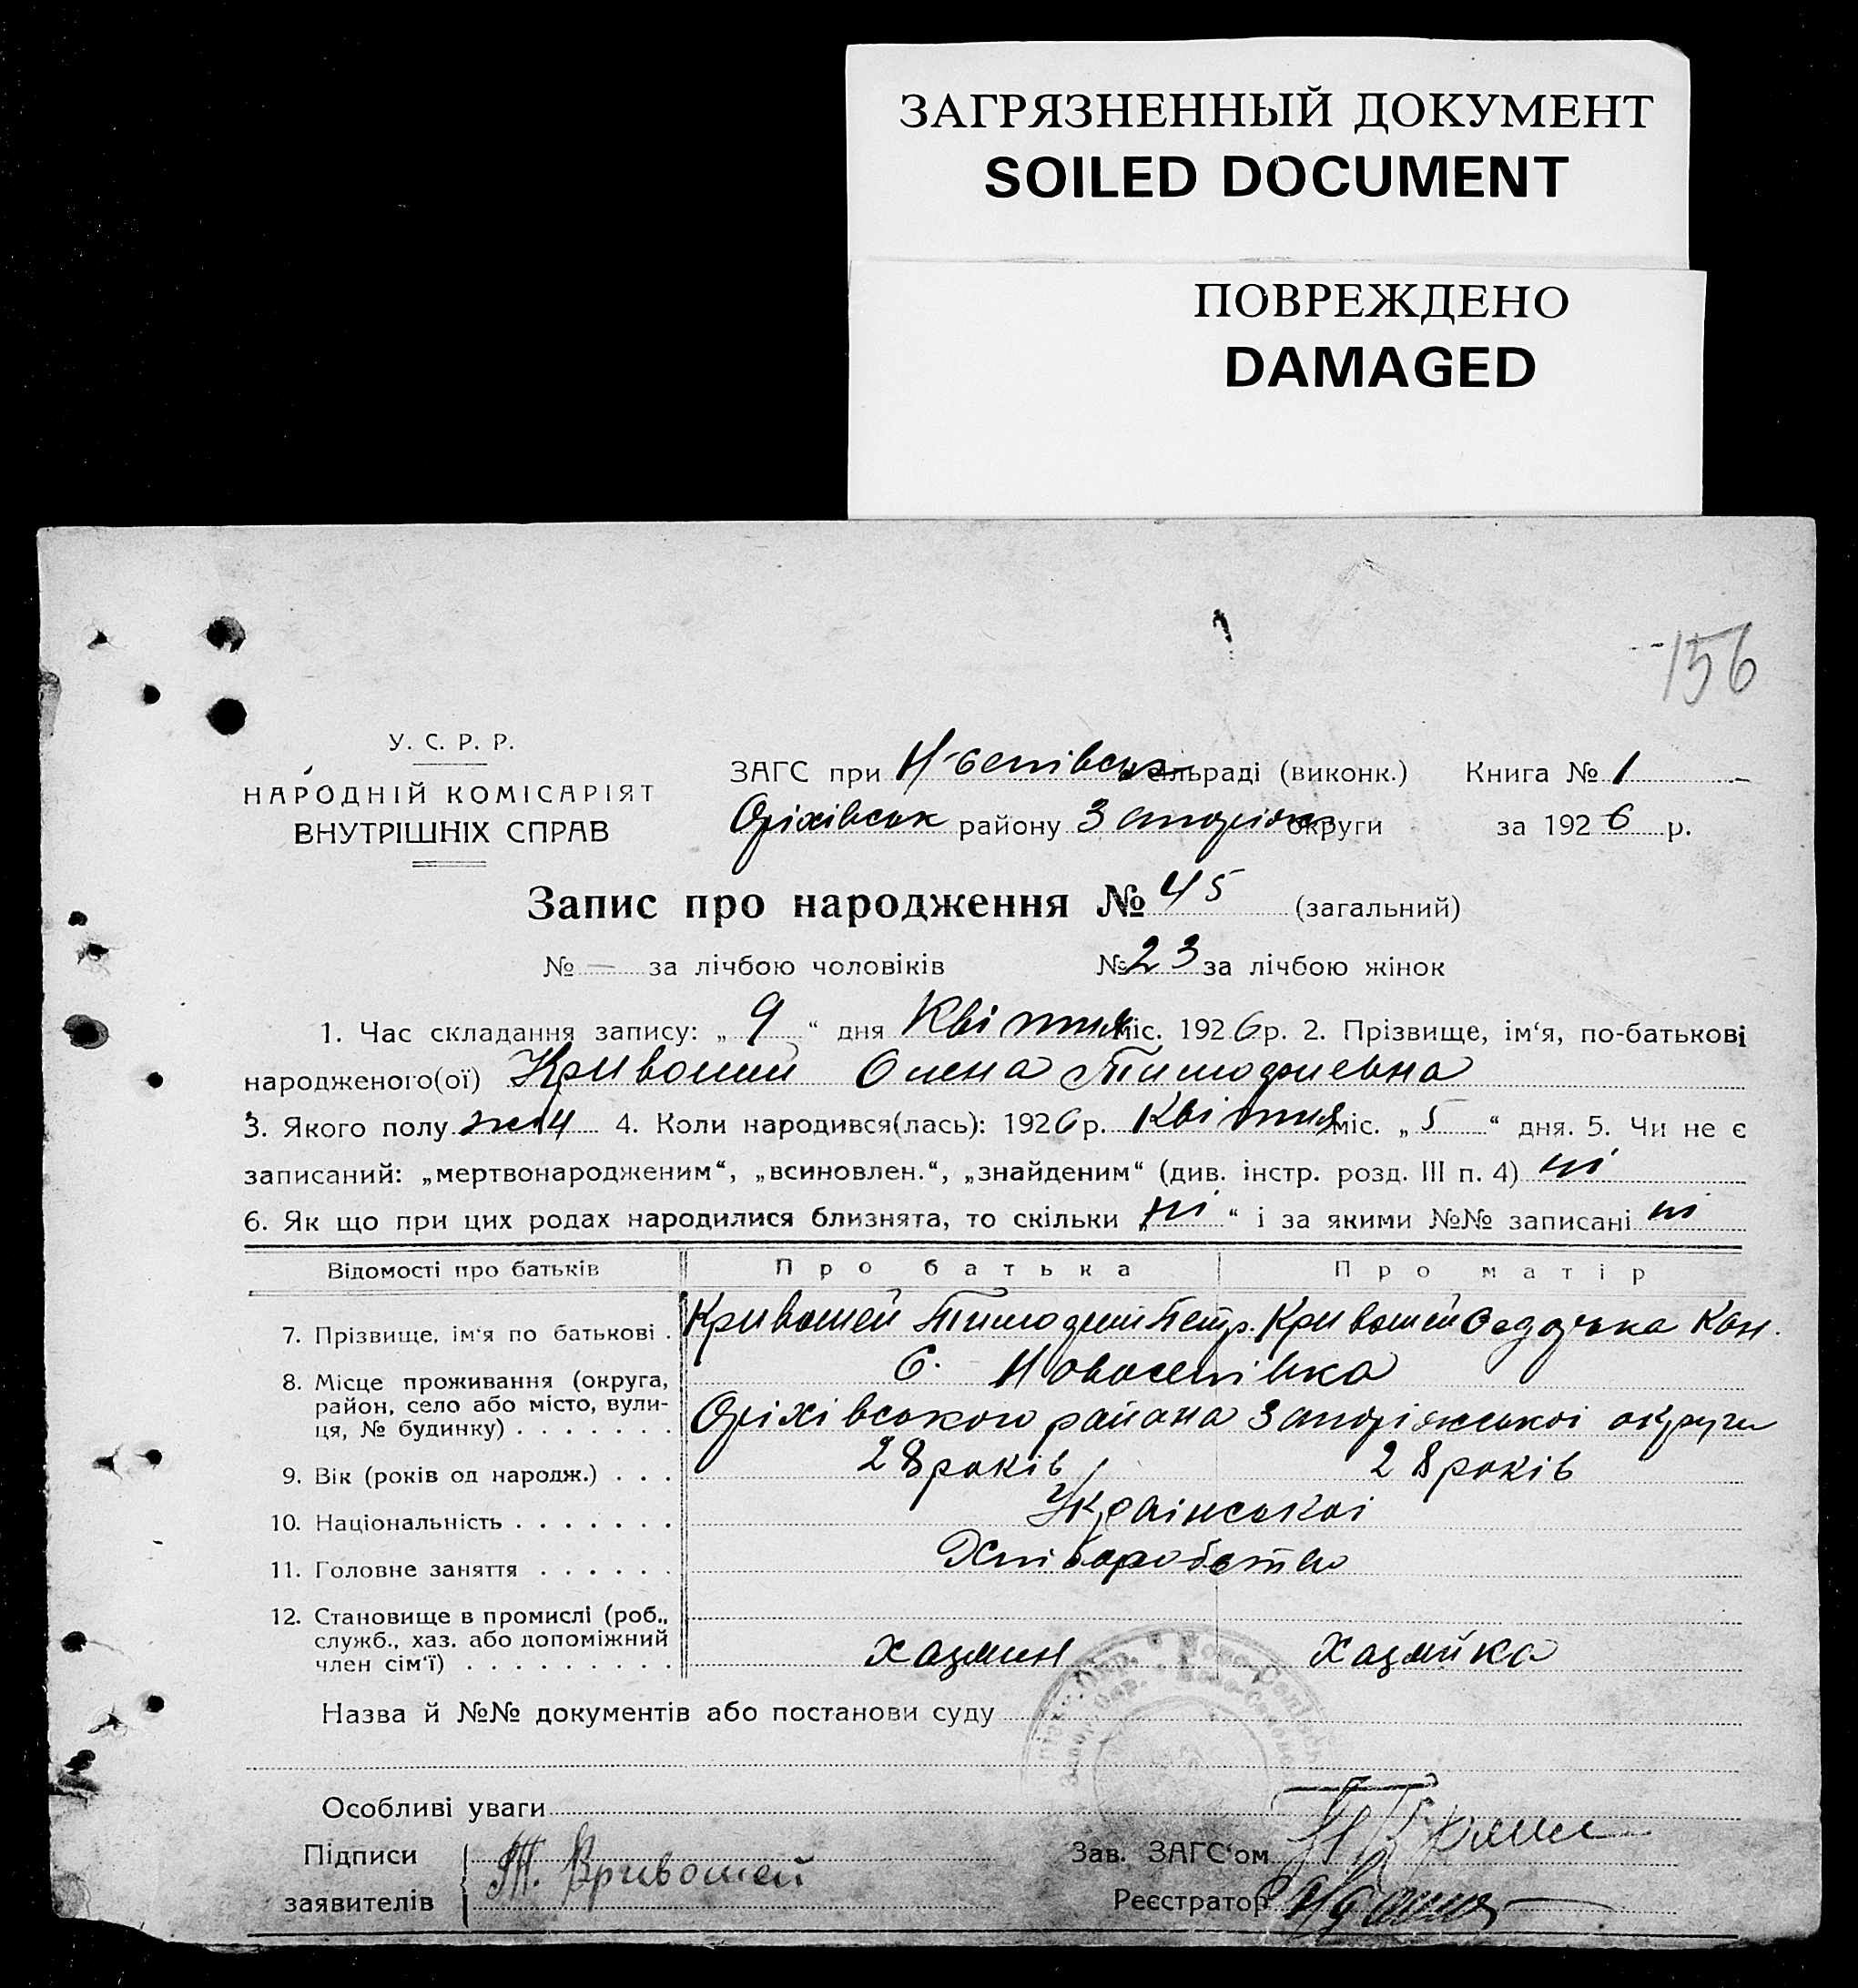 ЗАГРЯЗНЕННЫЙ ДОКУМЕНТ
SOILED DOCUMENT
ПОВРЕЖДЕНО
DAMAGED
156
У. С. Р. Р.
НАРОДНІЙ КОМІСАРІЯТ
ВНУТРІШНІХ СПРАВ
ЗАГС при Н-селівськ сільраді (виконк.) Книга № 1
Оріхівськ району Запоріжж округи за 1926 р.
Запис про народження № 45 (загальний)
№ — за лічбою чоловіків № 23 за лічбою жінок
1. Час складання запису: „ 9 “ дня Квітня міс. 1926 р. 2. Прізвище, ім‘я, по-батькові
народженого(ої) Кривошей Олена Тимофіевна
3. Якого полу жін 4. Коли народився(лась): 1926 р. Квітня міс. „ 5 “ дня. 5. Чи не є
записаний: „мертвонародженим“, „всиновлен.“, „знайденим“ (див. інстр. розд. III п. 4) ні
6. Як що при цих родах народилися близнята, то скільки „ ні “ і за якими №№ записані ні
Відомості про батьків Про батька Про матір
7. Прізвище, ім‘я по батькові . Кривошей Тимофій Петр. Кривошей
8. Місце проживання (округа, район, село або місто, вулиця, № будинку) . . . . . . . С. Новоселівка
Оріхівського района Запоріжської округи
9. Вік (років од народж.) . . . 28 років 28 років
10. Національність . . . . . . . Української
11. Головне заняття . . . . . . Хліборобство
12. Становище в промислі (роб., служб., хаз. або допоміжний член сім‘ї) . . . . . . . . . Хазяин Хазяйка
Назва й №№ документів або постанови суду
Особливі уваги
Підписи
заявителів
Т. Кривошей
Зав. ЗАГС‘ом
Реєстратор